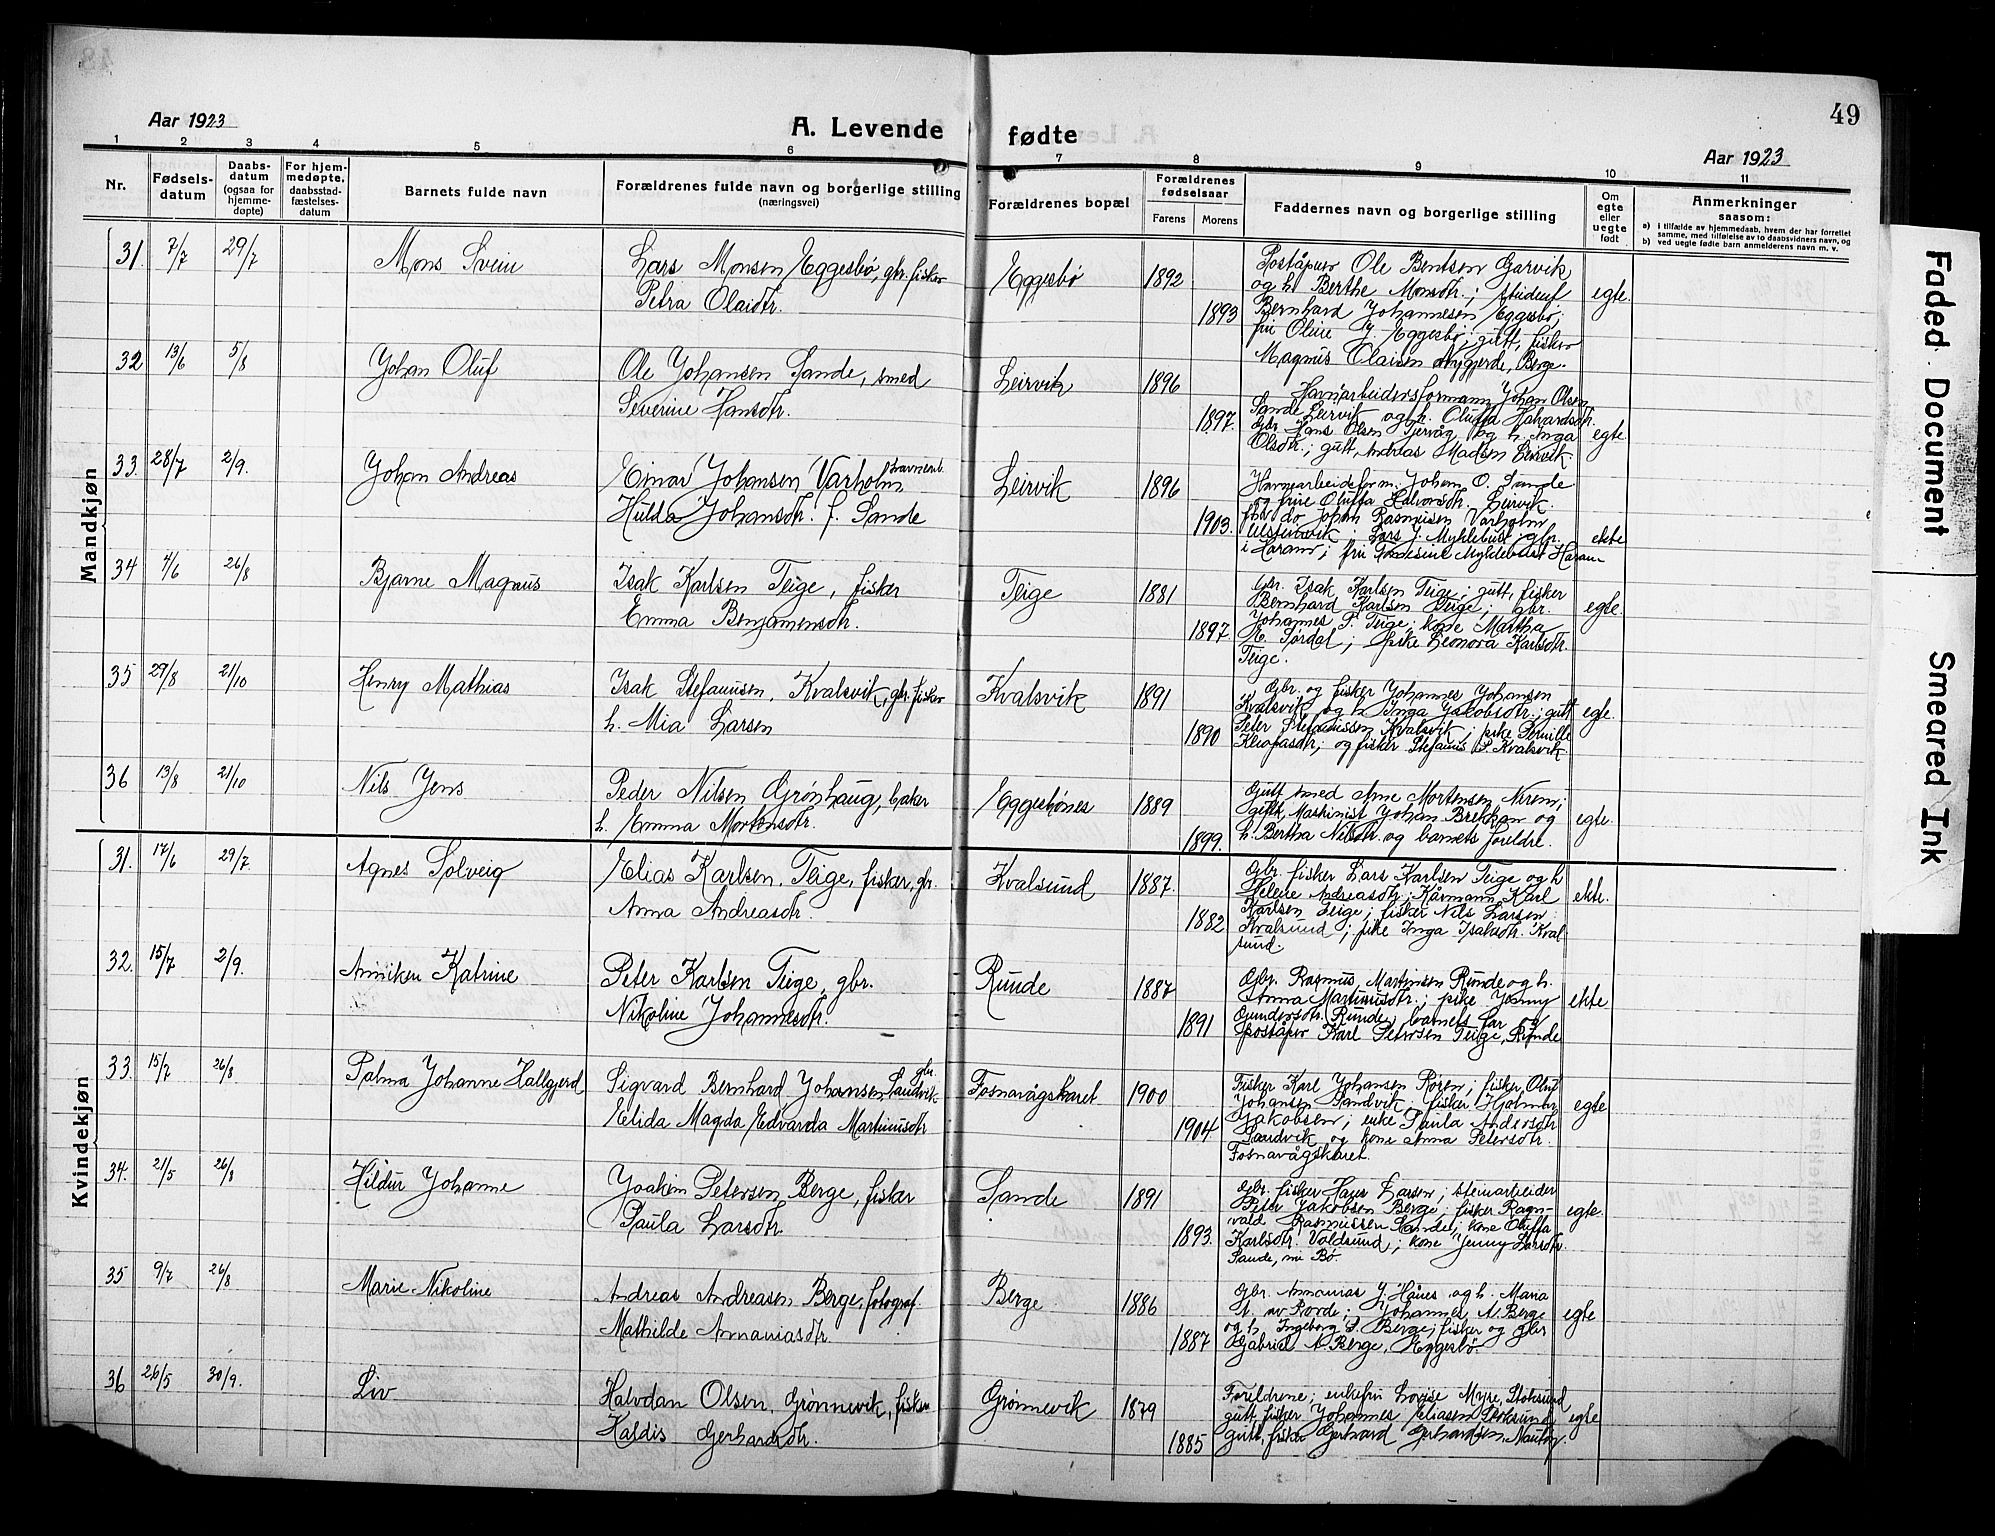 48
49
Aar 1923
A. Levende fødte
Aar 1923
1 2 3 4 5 6 7 8 9 10 11
Nr.
Fødsels-
datum
Daabs-
datum
(ogsaa for
hjemme-
døpte)
For hjem-
medøpte,
daabsstad-
fæstelses-
datum
Barnets fulde navn
Forældrenes fulde navn og borgerlige stilling
(næringsvei)
Forældrenes bopæl
Forældrenes
fødselsaar
Farens Morens
Faddernes navn og borgerlige stilling
Om
egte
eller
uegte
født
Anmerkninger
saasom:
a) i tilfælde av hjemmedaab, hvem der har forrettet
samme, med tilføielse av to daabsvidners navn, og
b) ved uegte fødte barn anmelderens navn m. v.
Mandkjøn
31. 7/7 29/7 Mons Svein
Lars Monsen Eggesbø, gbr. fisker
Petra Olaidtr.
Eggesbø 1892 1893
Poståpner Ole Bentsen Garvik
og h. Berthe Monsdtr.; student
Bernhard Johannesen Eggesbø;
fru Oline J. Eggesbø; gutt, fisker
Magnus Olaisen Nygjerde, Berge.
egte.
32 13/6 5/8 Johan Oluf
Ole Johansen Sande, smed
Severine Hansdtr.
Leirvik 1896 1897.
Havnarbeidersformann Johan Olsen
Sande Leirvik og h. Oluffa Halvardsdtr.
Gbr. Hans Olsen Tjervåg og h. Inga
Olsdtr.; gutt, Andreas Madsen Leirvik.
egte.
33. 28/7 2/9. Johan Andreas
Einar Johansen Varholm, havnearb.
Hulda Johansdtr. f. Sande
Leirvik 1896 1903.
Havnearbeidsform. Johan O. Sande
og frue Oluffa Halvorsdtr. Leirvik.
Johan Rasmusen Varholm
Ulsteinvik Lars J. Myklebust gbr.
i Haram; fru Myklebust Haram
ekte
34 4/6 26/8 Bjarne Magnus
Isak Karlsen Teige, fisker
Emma Benjamensdtr.
Teige 1881 1897
Gbr. Isak Karlsen Teige; gutt, fisker
Bernhard Karlsen Teige; gbr.
Johannes P. Teige; kone Martha
E. Sørdal; pike Leonora Karlsdtr.
Teige.
egte.
35 29/8 21/10 Henry Mathias
Isak Stefanusen, Kvalsvik, gbr. fisker
h. Mia Larsen
Kvalsvik 1891 1890
Gbr. og fisker Johannes Johansen
Kvalsvik og h. Inga Jakobsdtr.; gutt
Peter Stefanussen Kvalsvik; pike Pernille
Kleofasdtr; og fisker Stefanus P. Kvalsvik.
egte.
36 13/8 21/10 Nils Jens
Peder Nilsen Grønhaug, baker
h. Emma Mortensdtr.
Eggesbønes 1889 1899.
Gutt smed Arne Mortensen Nerem;
gutt, Maskinist Johan Brekkan og
h. Bertha Nilsdtr. og barnets foreldre.
egte.
Kvindekjøn
31. 17/6 29/7 Agnes Solveig
Elias Karlsen, Teige, fisker, gbr.
Anna Andreasdtr.
Kvalsund 1887. 1882
Gbr. fisker Lars Karlsen Teige og h
Helene Andreasdtr; Kårmann Karl
Karlsen Teige; fisker Nils Larsen
Kvalsund; pike Inga Isaksdtr. Kval-
sund.
ekte.
32. 15/7 2/9. Anniken Katrine
Peter Karlsen Teige, gbr.
Nikoline Johannesdtr.
Runde 1887 1891
Gbr. Rasmus Martinsen Runde og h.
Anna Martinusdtr.; pike Jenny
Gundersdtr. Runde; barnets far og
poståpner Karl Petersen Teige, Runde
ekte
33. 15/7 26/8 Palma Johanne Hallgjerd
Sigvard Bernhard Johansen Sandvik gbr.
Elida Magda Edvarda Martinusdtr
Fosnavågskaret 1900 1904
Fisker Karl Johansen Røren; fisker Oluf
Johansen Sandvik; fisker Hjalmar
Jakobsen; enke Paula Andersdtr
Sandvik og kone Anna Petersdtr.
Fosnavågskaret.
egte
34. 21/5 26/8 Hildur Johanne
Joakim Petersen Berge, fisker
Paula Larsdtr.
Sande 1891 1893.
Gbr. fisker Hans Larsen; steinarbeider
Peter Jakobsen Berge; fisker Ragn-
vald Rasmussen Sande; kone Oluffa
Karlsdtr. Voldsund; kone Jenny Larsdtr.
Sande, nu Bø.
egte.
35 9/7 26/8 Marie Nikoline
Andreas Andreasen Berge, fotograf
Mathilde Annaniasdtr
Berge 1886 1887
Gbr. Annanias J. Haues og h. Maria
Johannes A. Berge
og h. Ingeborg S. Berge; fisker og gbr
Gabriel A Berge, Eggesbø.
egte
36 26/5 30/9. Liv
Halvdan Olsen, Grønnevik, fisker
Haldis Gerhardsdtr.
Grønnevik 1879 1885
Foreldrene; enkefru Lovise Myre, Stoksund
gutt, fisker Johannes Eliasen Stoksund
gutt, fisker Gerhard Gerhardsen, Nautøy.
egte
Faded Document
Smeared Ink